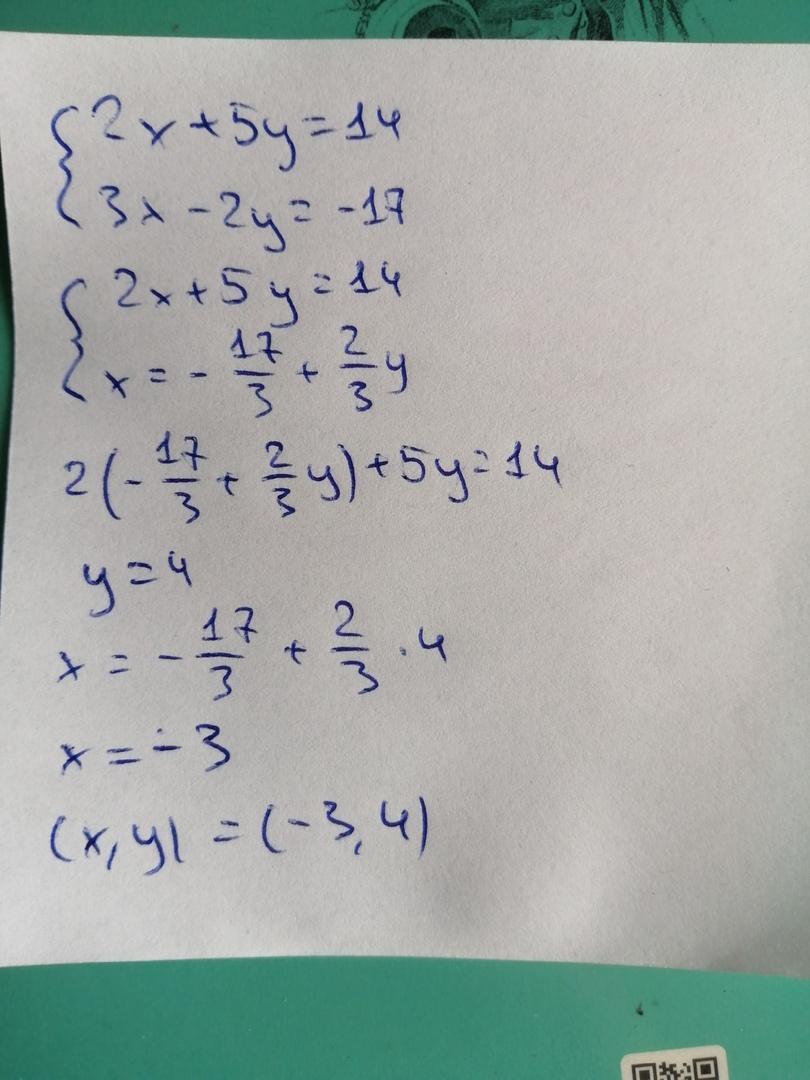 {2x+5y=14
3x-2y=-17
{2x+5y=14
x=-17/3+2/3y
2(-17/3+2/3y)+5y=14
y=4
x=-17/3+2/3·4
x=-3
(x,y)=(-3,4)